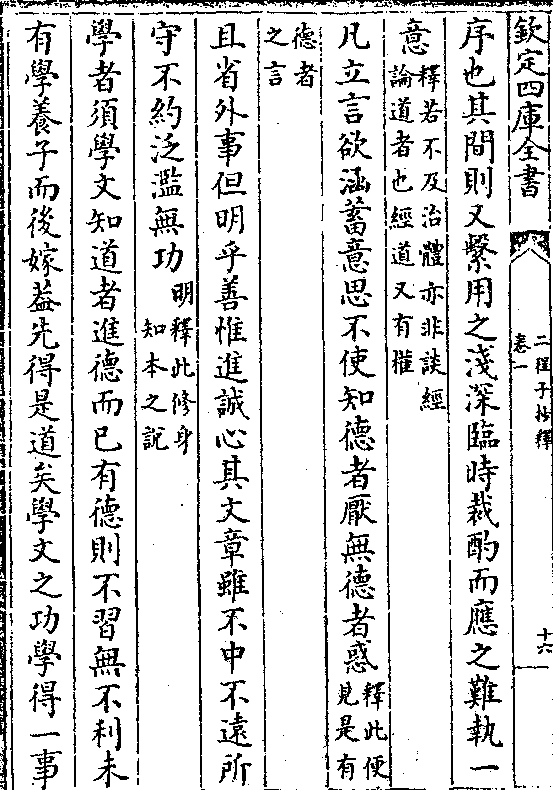 欽定四庫全書
二程子抄釋
卷一
十六
序也其間則又繫用之淺深臨時裁酌而應之難執一
意
釋若不及治體亦非談經
論道者也經道又有權
凡立言欲涵蓄意思不使知德者厭無德者惑
釋此便
見是有
德者
之言
且省外事但明乎善惟進誠心其文章雖不中不遠所
守不約泛濫無功
明釋此修身
知本之說
學者須學文知道者進德而已有德則不習無不利未
有學養子而後嫁葢先得是道矣學文之功學得一事